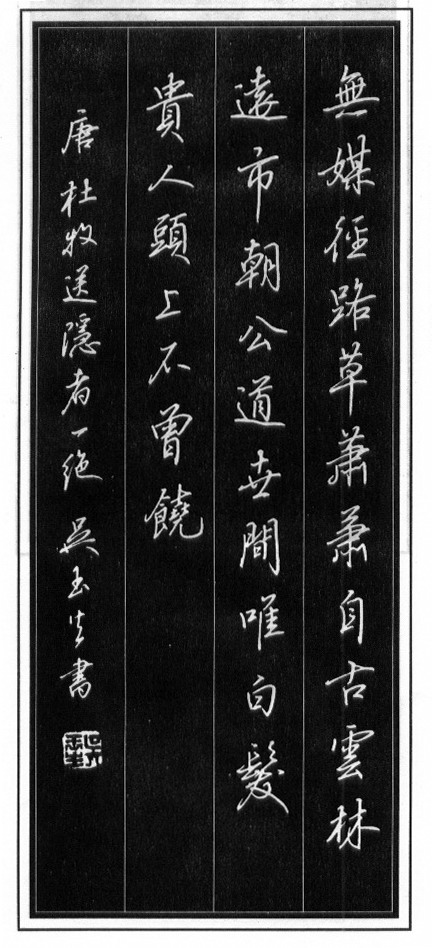 無媒徑路草蕭蕭自古雲林
遠市朝公道世間唯白髮
貴人頭上不曾饒
唐杜牧送隱者一絶 吳玉生書